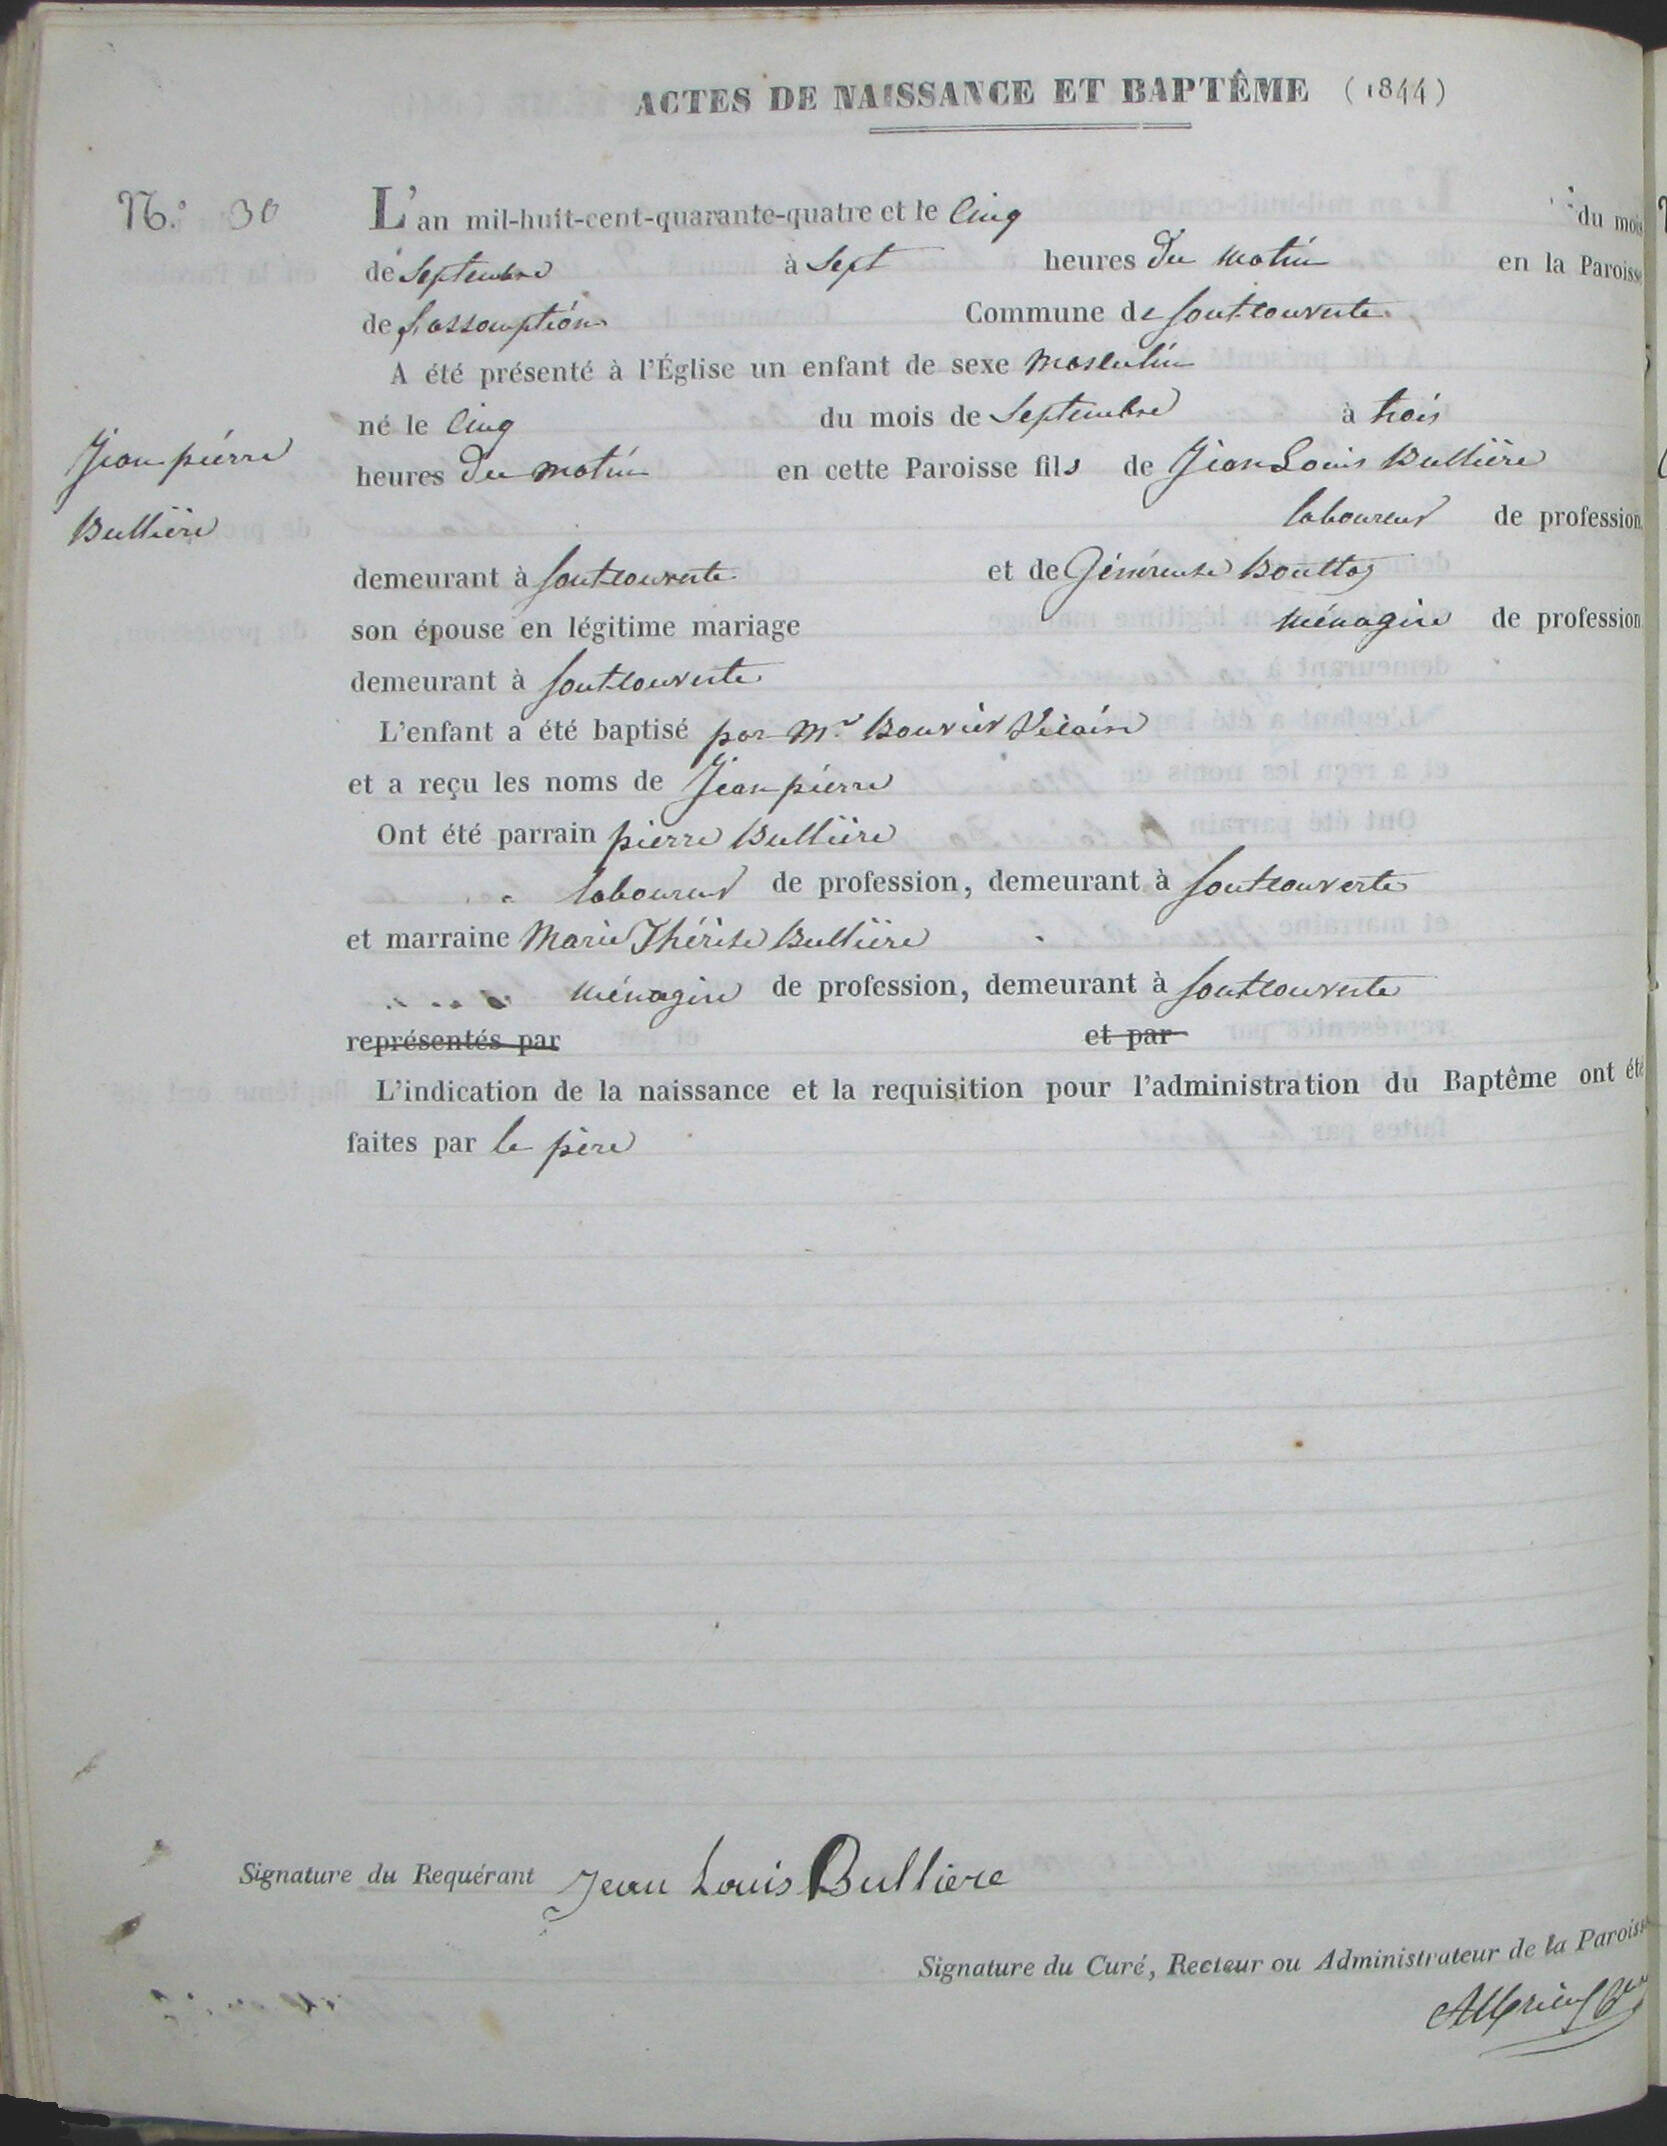 ACTES DE NAISSANCE ET BAPTÊME (1844)
N.° 30
L'an mil-huit-cent-quarante-quatre et le Cinq du mois
de Septembre à Sept heures Du matin en la Paroisse
de L'assomption Commune de fontcouverte
A été présenté à l'Église un enfant de sexe Masculin
né le Cinq du mois de Septembre à trois
Jean pierre
heures Du matin en cette Paroisse fils de Jean Louis Bullière
Bullière
laboureur de profession
demeurant à fontcouverte et de Généreuse Bouttaz
son épouse en légitime mariage Ménagère de profession
demeurant à fontcouverte
L'enfant a été baptisé par Mr Bouvier Vicaire
et a reçu les noms de Jean pierre
Ont été parrain pierre Bullière
laboureur de profession, demeurant à fontcouverte
et marraine Marie Thérèse Bullière
Ménagère de profession, demeurant à fontcouverte
représentés par et par
L'indication de la naissance et la requisition pour l'administration du Baptême ont été
faites par le père
Signature du Requérant Jean Louis Bulliere
Signature du Curé, Recteur ou Administrateur de la Paroisse